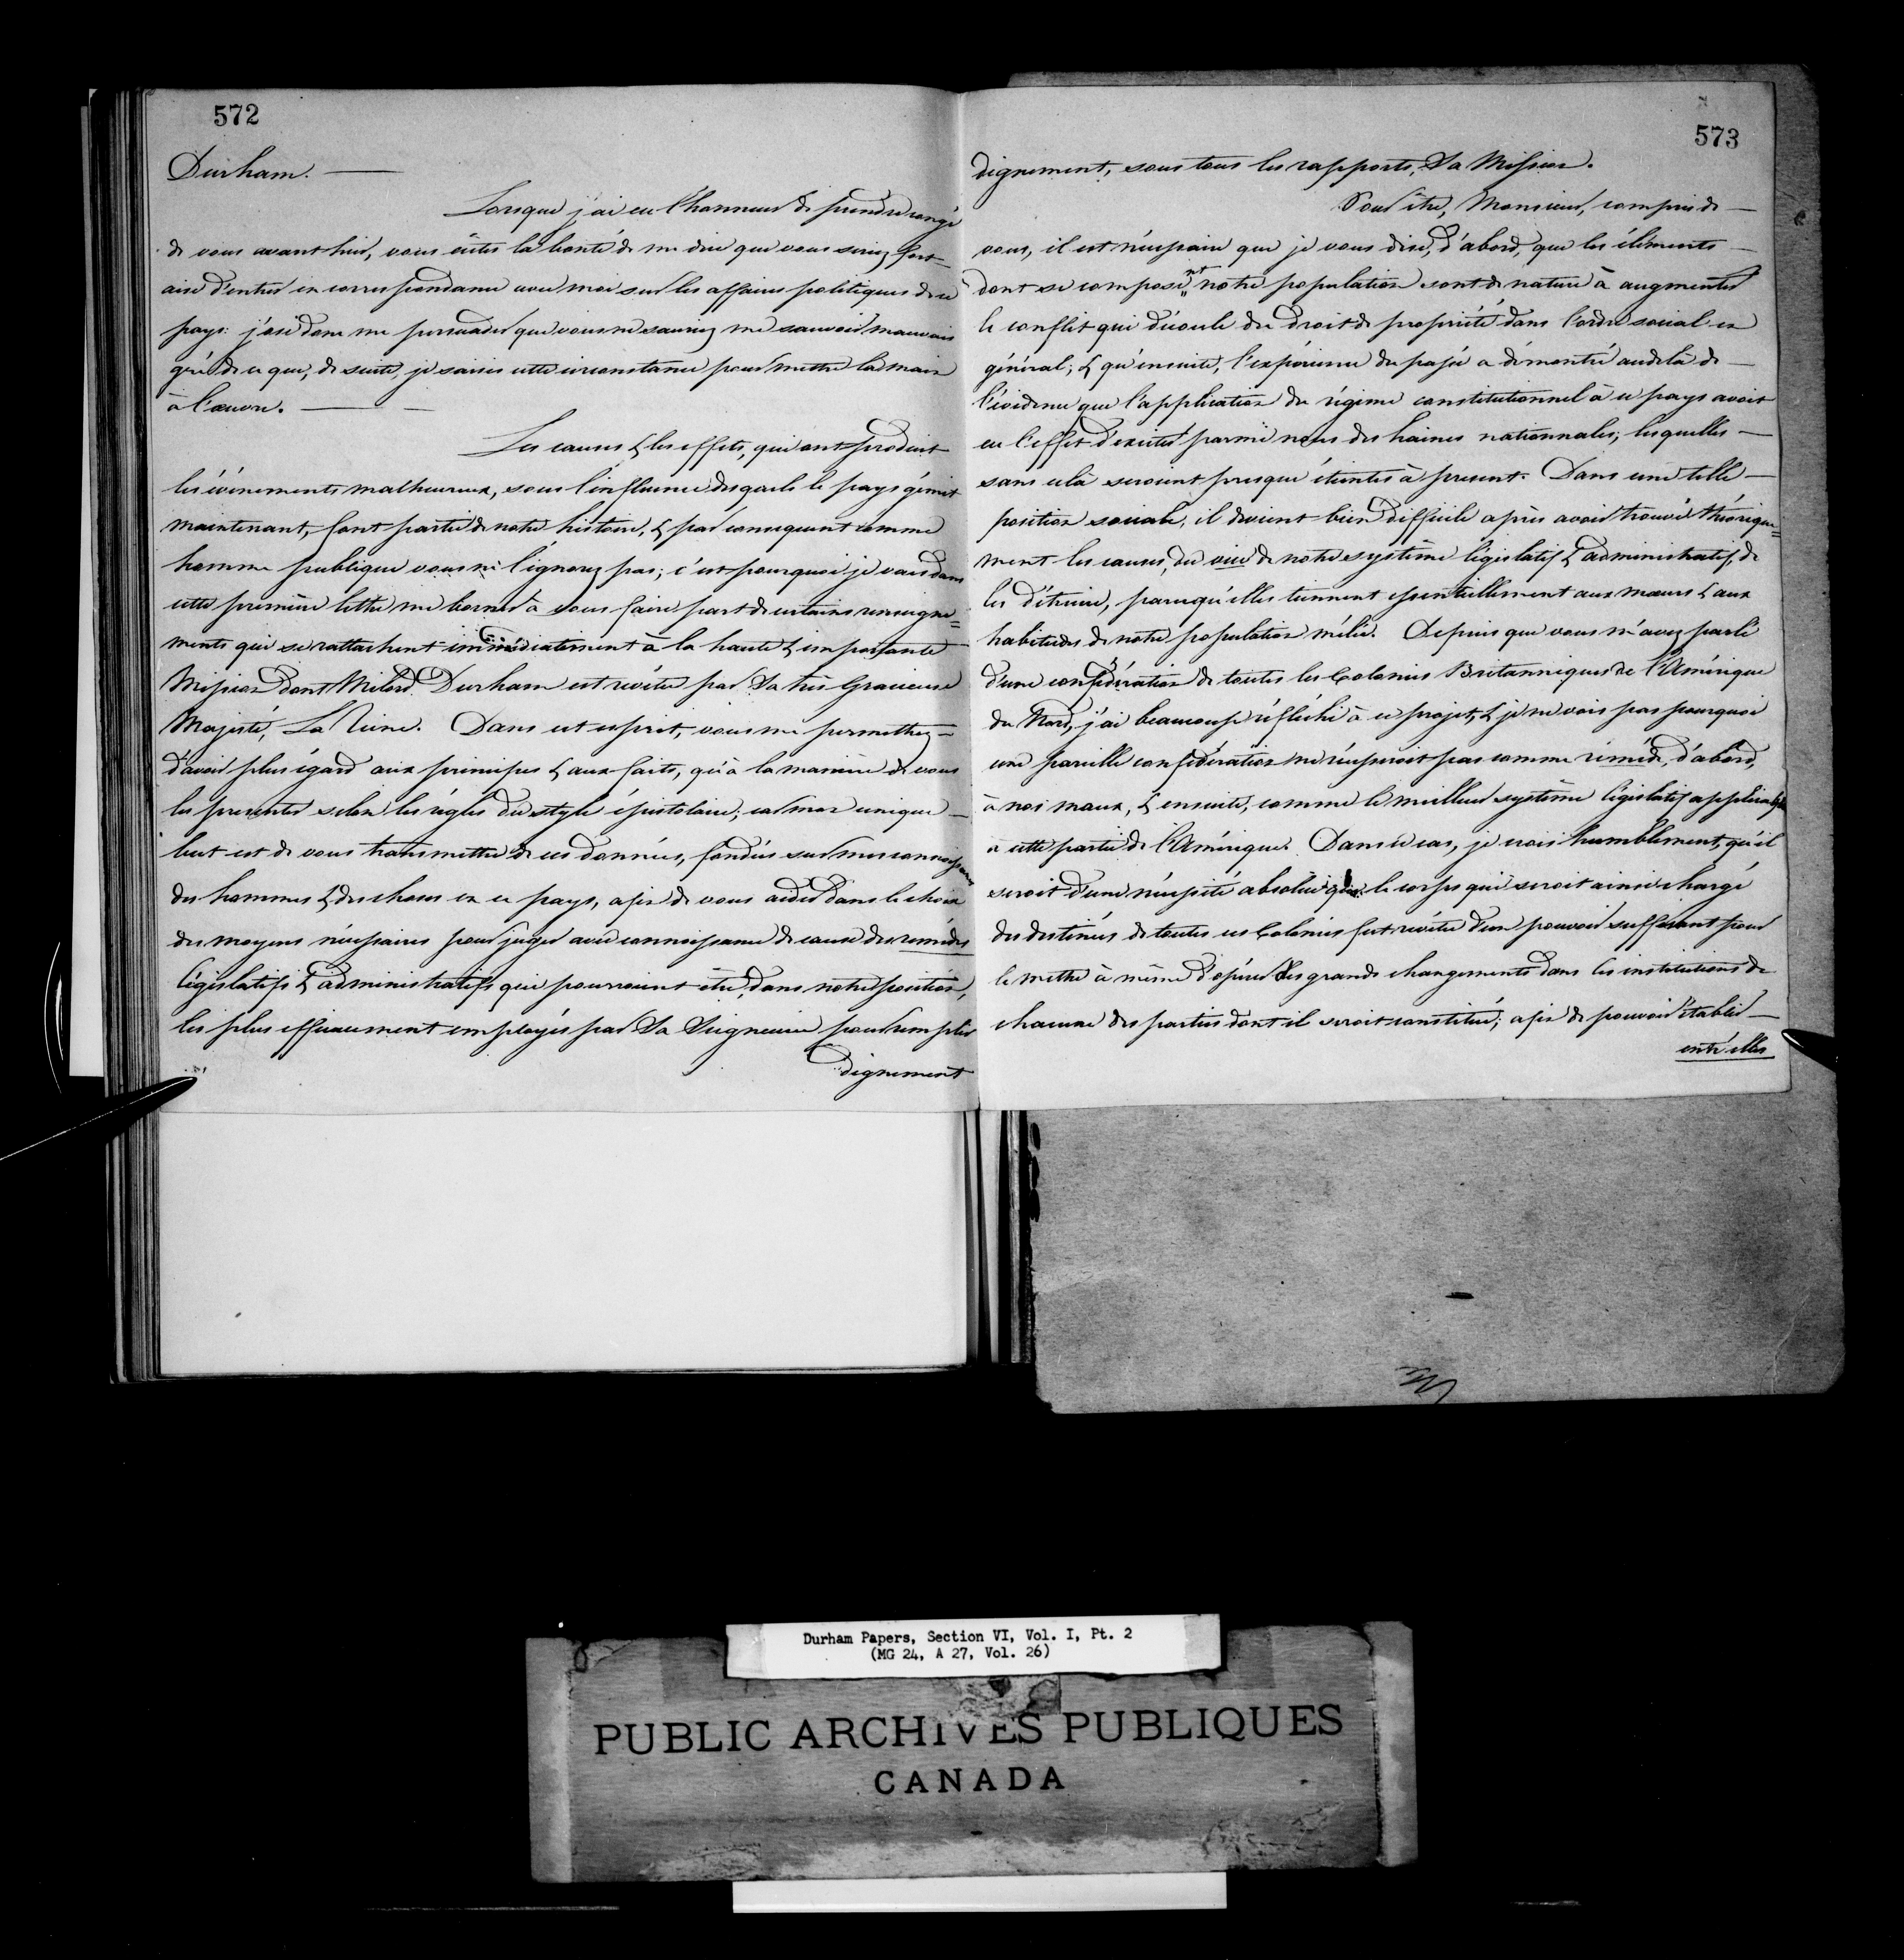 572
Durham. —
Lorsque j'ai eu l'honneur de prendre congé
de vous avant hier, vous eûtes la bonté de me dire que vous seriez fort
aise d'entrer en correspondance avec moi sur les affaires politiques de ce
pays: j'ose donc me persuader que vous ne sauriez me savoir mauvais
gré de ce que, de suite, je saisis cette circonstance pour mettre la main
à l'œuvre. —
Les causes & les effets, qui ont produit
les évènements malheureux, sous l'influence desquels le pays gémit
maintenant, font partie de notre histoire, & par consequent comme
homme publique vous ne l'ignorez pas; c'est pourquoi je vais dans
cette première lettre me borner à vous faire part de certains renseigne=
ments qui se rattachent immédiatement à la haute & importante
Mission dont Milord Durham est revêtu par Sa très Gracieuse
Majesté, La Reine. Dans cet esprit, vous me permettrez —
d'avoir plus égard aux principes & aux faits, qu'à la manière de vous
les presenter selon les règles du style épistolaire; car mon unique —
but est de vous transmettre de ces données, fondées sur mes connoissances
des hommes & des choses en ce pays, afin de vous aider dans le choix
des moyens nécessaires pour juger avec connoissance de cause des remèdes
législatifs & administratifs qui pourroient être, dans notre position,
les plus efficacement employés par Sa Seigneurie pour remplir
dignement
573
dignement, sous tous les rapports, Sa Mission.
Pour être, Monsieur, compris de —
vous, il est nécessaire que je vous dise, d'abord, que les éléments —
dont se composent notre population sont de nature à augmenter
le conflit qui découle du droit de propriété dans l'ordre social en
général; & qu'ensuite, l'expérience du passé a démontré audelà de —
l'évidence que l'application du régime constitutionnel à ce pays avoit
eu l'effet d'exciter parmi nous des haines nationnales; lesquelles —
sans celà seroient presque éteintes à present. Dans une telle —
position sociale, il devient bien difficile après avoir trouvé théorique=
ment les causes, du vice de notre système législatif & administratif, de
les détruire, parcequ'elles tiennent essentiellement aux mœurs & aux
habitudes de notre population mélée. Depuis que vous m'avez parlé
d'une confédération de toutes les Colonies Britanniques de l'Amérique
du Nord, j'ai beaucoup réfléchi à ce projet, & je ne vois pas pourquoi
une pareille confédération ne réussiroit pas comme remède, d'abord,
à nos maux, & ensuite, comme le meilleur système législatif applicable
à cette partie de l'Amérique. Dans ce cas, je crois humblement, qu'il
seroit d'une nécessité absolue que le corps qui seroit ainsi chargé
des destinées de toutes ces Colonies fut revêtu d'un pouvoir suffisant pour
le mettre à même d'opérer des grands changements dans les institutions de
chacune des parties dont il seroit constitué; afin de pouvoir établir —
entr'elles
Durham Papers, Section VI, Vol. I, Pt. 2
(MG 24, A 27, Vol. 26)
PUBLIC ARCHIVES PUBLIQUES
CANADA